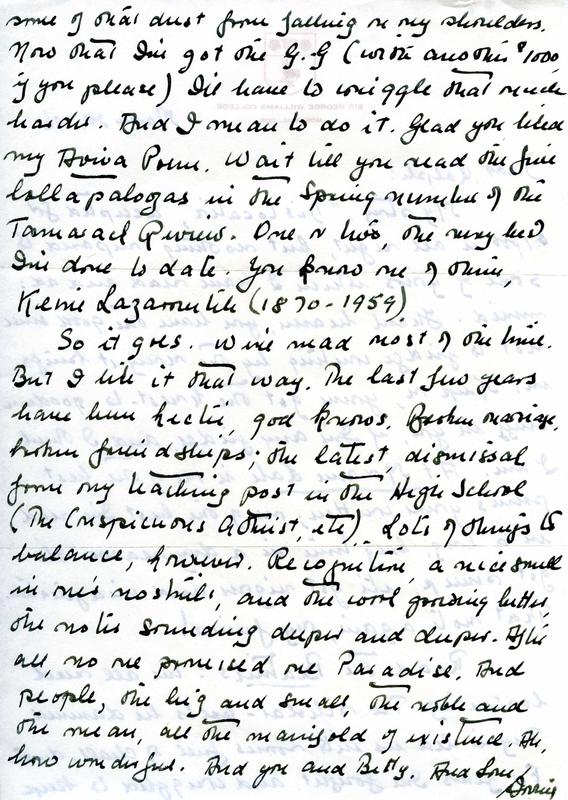 some of that dust from falling on my shoulders.
Now that I've got the G.G (with another $1000
if you please) I'll have to wriggle that much
harder. And I mean to do it. Glad you liked
my Aviva Poem. Wait till you read the five
lollapalozas in the Spring number of the
Tamarack Review. One or two, the very best
I've done to date. You know one of them,
Keine Lazarovitch (1870-1959)
So it goes. We're mad most of the time.
But I like it that way. The last few years
have been hectic, god knows. Broken marriage,
broken friendships; the latest, dismissal
from my teaching post in the High School
(The Conspicuous Atheist, etc). Lots of things to
balance, however. Recognition, a nice smell
in one's nostrils, and the work growing better,
the notes sounding deeper and deeper. After
all, no one promised me Paradise. And
people, the big and small, the noble and
the mean, all the manifold of existence. Ah,
how wonderful. And you and Betty. And Love,
Irving
SIR GEORGE WILLIAMS COLLEGE